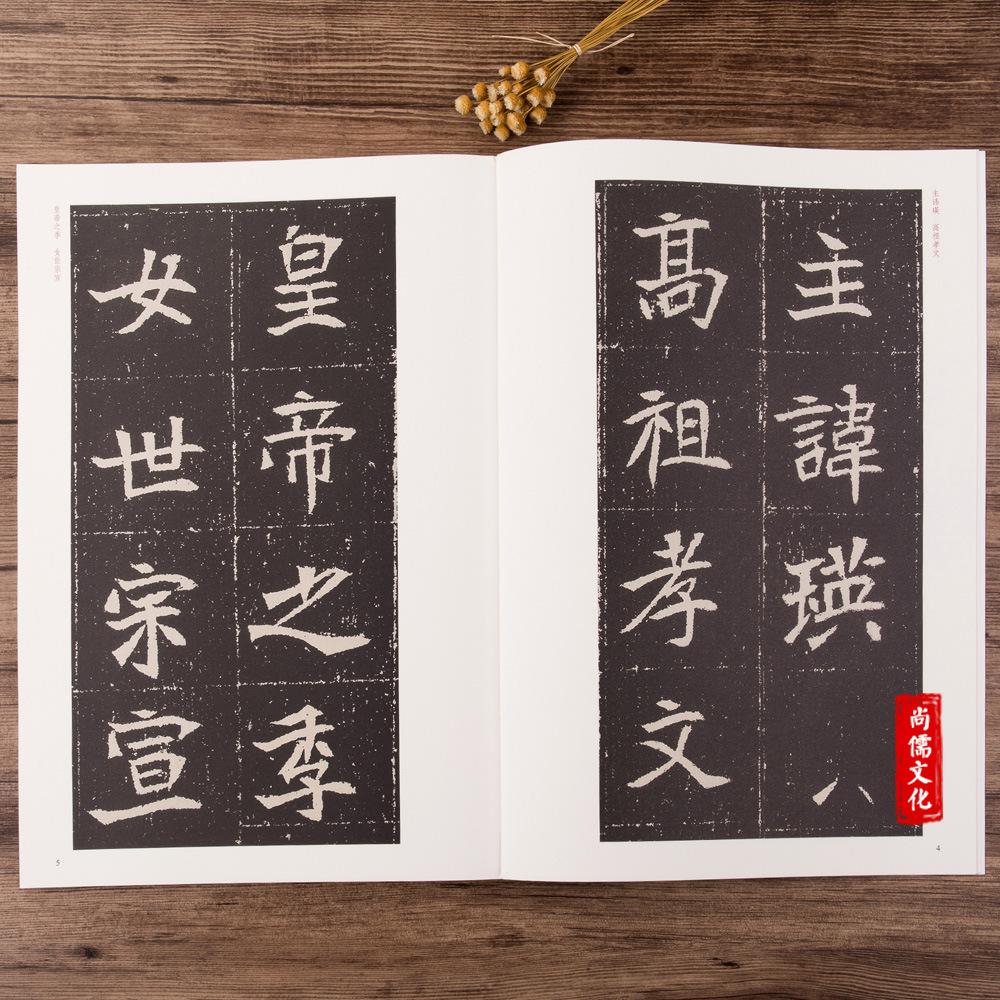 主諱瑛八
高祖孝文
皇帝之季
女世宗宣
主讳瑛 高祖孝文
皇帝之季 女世宗宣
4
5
尚儒文化